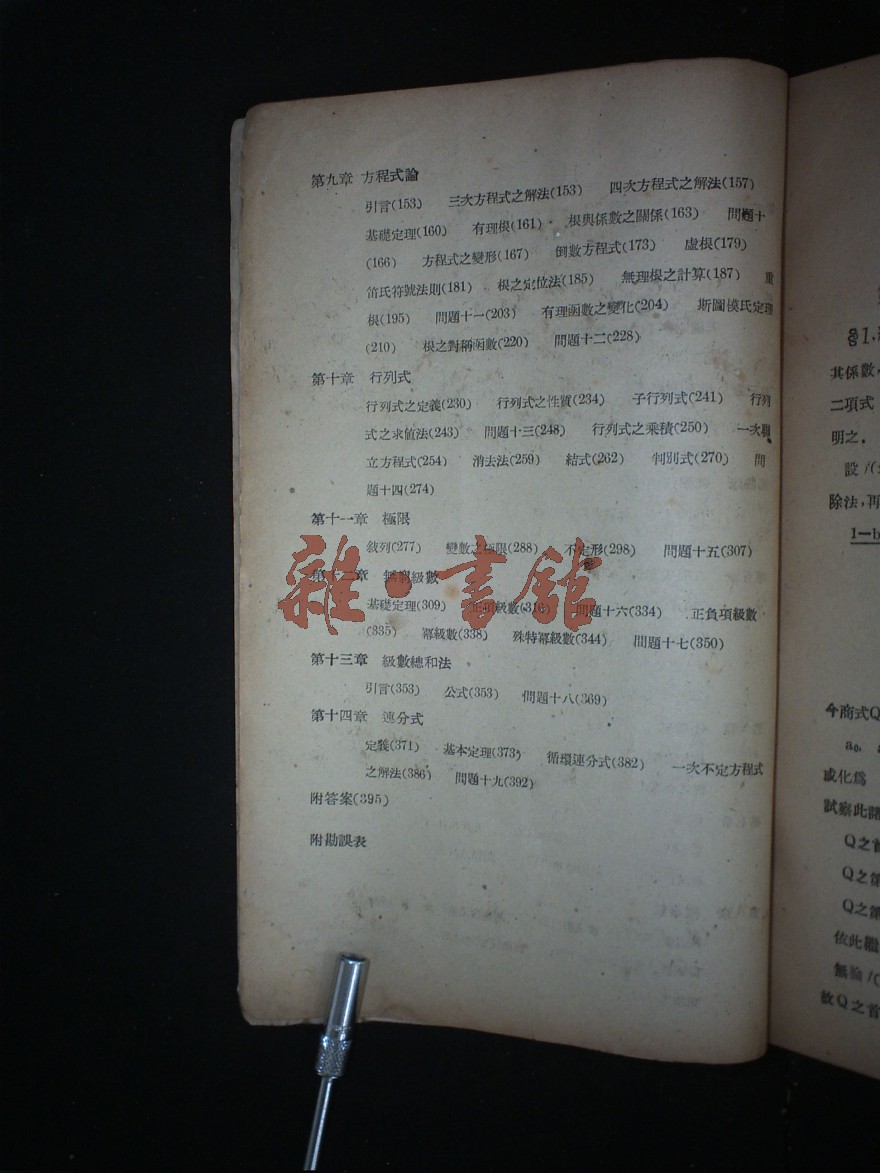 第九章 方程式論
引言(153) 三次方程式之解法(153) 四次方程式之解法(157)
基礎定理(160) 有理根(161) 根與係數之關係(163) 問題十
(166) 方程式之變形(167) 倒數方程式(173) 虛根(179)
笛氏符號法則(181) 根之定位法(185) 無理根之計算(187) 重
根(195) 問題十一(203) 有理函數之變化(204) 斯圖模氏定理
(210) 根之對稱函數(220) 問題十二(228)
第十章 行列式
行列式之定義(230) 行列式之性質(234) 子行列式(241) 行列
式之求值法(243) 問題十三(248) 行列式之乘積(250) 一次聯
立方程式(254) 消去法(259) 結式(262) 判別式(270) 問
題十四(274)
第十一章 極限
敍列(277) 變數之極限(288) 不定形(298) 問題十五(307)
第十二章 無窮級數
基礎定理(309) 正項級數(316) 問題十六(334) 正負項級數
(335) 冪級數(338) 殊特冪級數(344) 問題十七(350)
第十三章 級數總和法
引言(353) 公式(353) 問題十八(369)
第十四章 連分式
定義(371) 基本定理(373) 循環連分式(382) 一次不定方程式
之解法(386) 問題十九(392)
附答案(395)
附勘誤表
雜·書館
§1.
其係數,
二項式
明之.
設 f(
除法,再
1—b
今商式Q
a₀,
或化爲
試察此諸
Q之首
Q之第
Q之第
依此繼
無論 f(
故Q之首